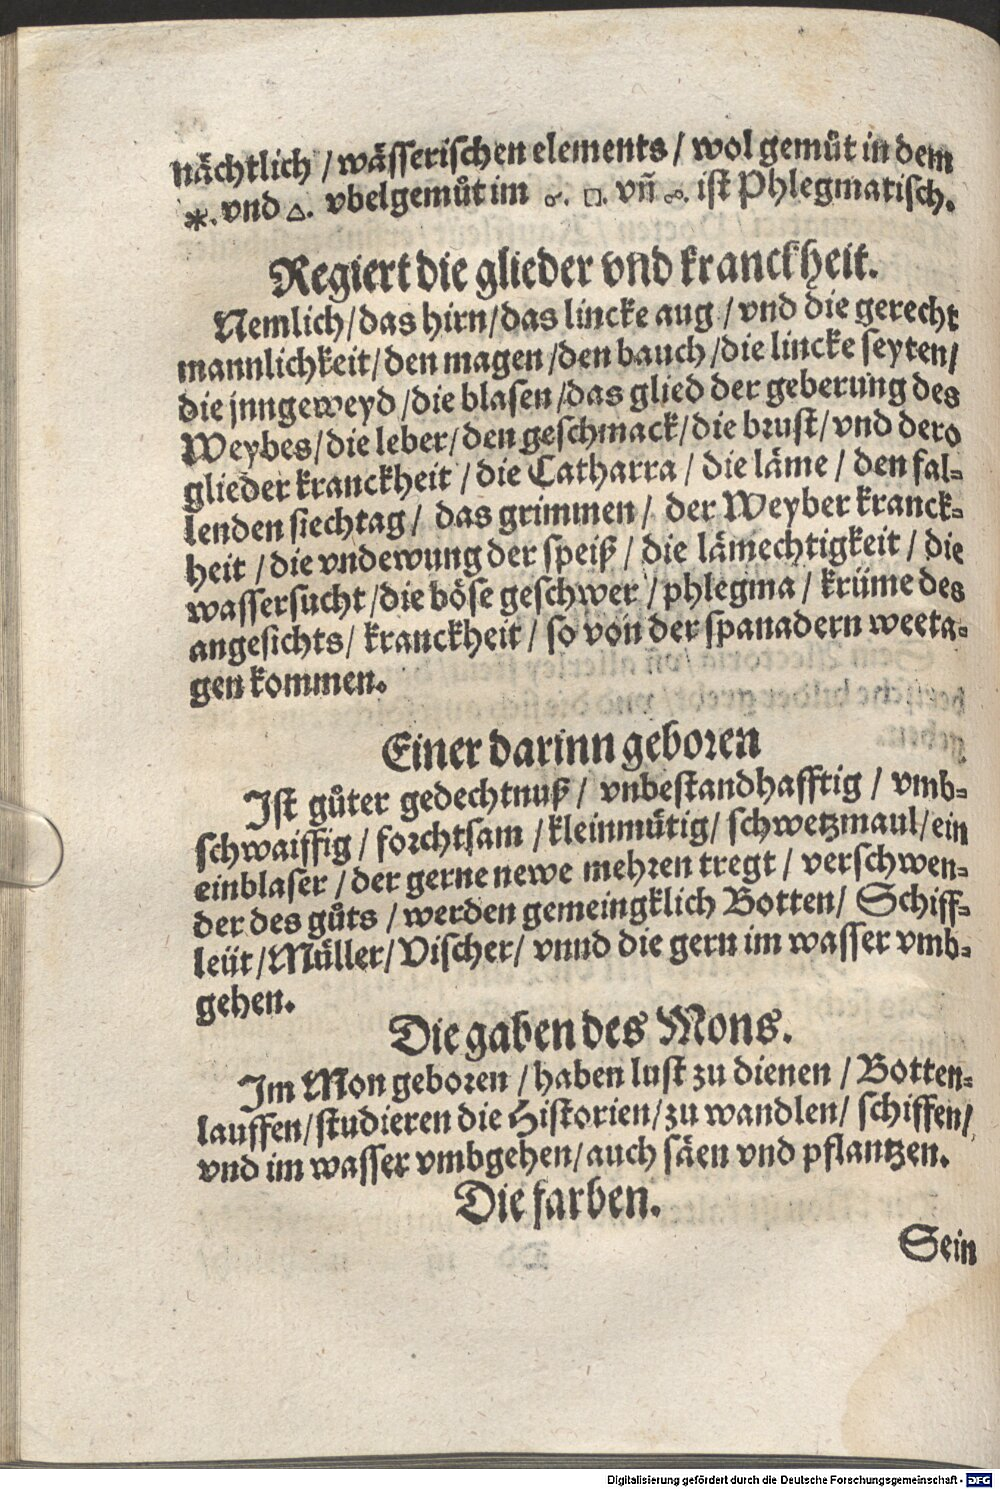 nächtlich / wässerischen elements / wol gemůt in dem
⚹. vnd △. vbelgemůt im ☌. □. vñ ☍. ist Phlegmatisch.
Regiert die glieder vnd kranckheit.
Nemlich/das hirn/das lincke aug / vnd die gerecht
mannlichkeit/den magen/den bauch/die lincke seyten/
die jnngeweyd/die blasen/das glied der geberung des
Weybes/die leber/den geschmack/die brust/vnd dero
glieder kranckheit / die Catharra / die läme / den fal-
lenden siechtag/ das grimmen / der Weyber kranck-
heit / die vndewung der speiß / die lämechtigkeit / die
wassersucht/die böse geschwer / phlegma / krüme des
angesichts/ kranckheit / so von der spanadern weeta-
gen kommen.
Einer darinn geboren
Ist gůter gedechtnuß / vnbestandhafftig / vmb-
schwaiffig / forchtsam / kleinmütig/ schwetzmaul/ein
einblaser / der gerne newe mehren tregt / verschwen-
der des gůts / werden gemeingklich Botten/ Schiff-
leüt/Müller/Vischer/ vnnd die gern im wasser vmb-
gehen.
Die gaben des Mons.
Im Mon geboren / haben lust zu dienen / Botten-
lauffen/studieren die Historien/zu wandlen/ schiffen/
vnd im wasser vmbgehen/auch säen vnd pflantzen.
Die farben.
Sein
Digitalisierung gefördert durch die Deutsche Forschungsgemeinschaft - DFG